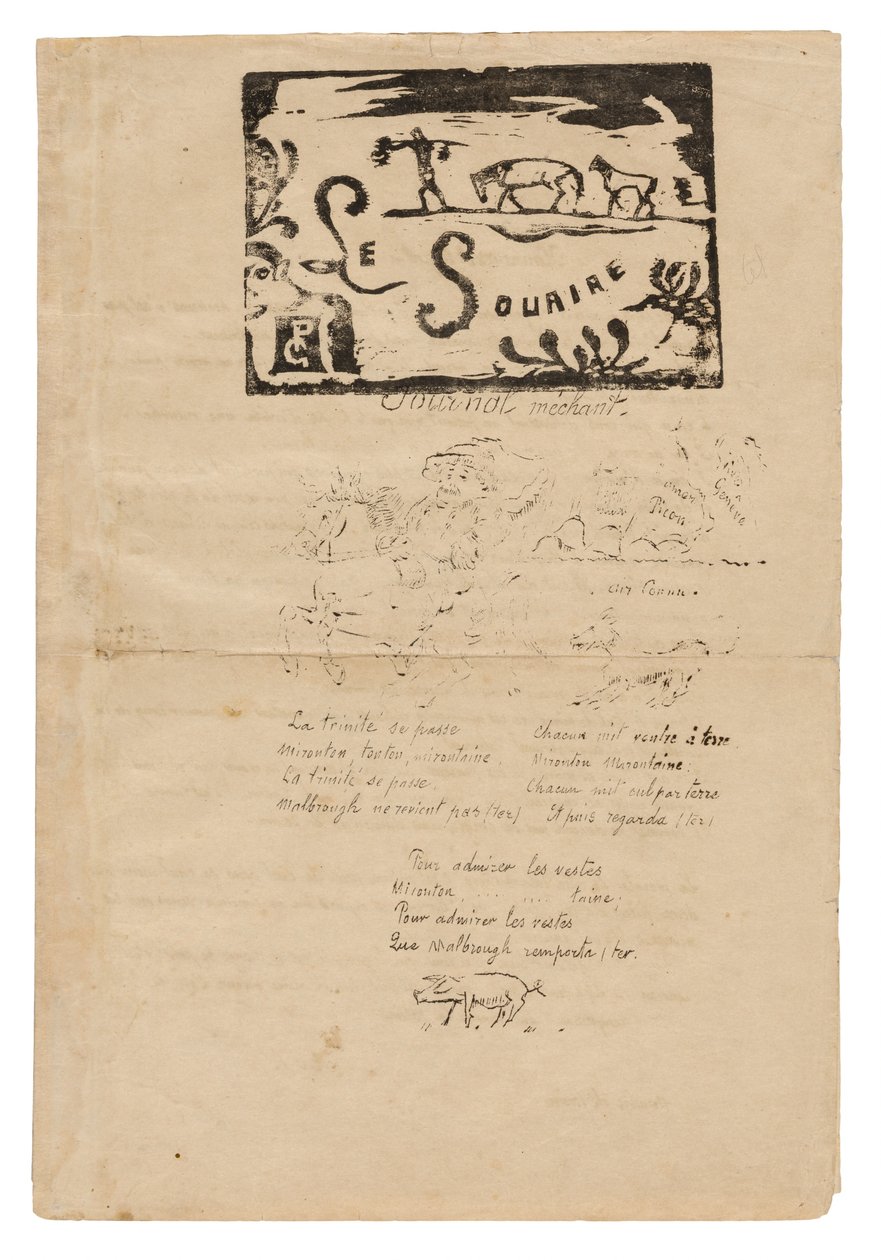 LE SOURIRE
PG
Journal méchant.
Amer Picon
Genève
air connu.
La trinité se passe
Mironton, tonton, mirontaine.
La trinité se passe.
Malbrough ne revient pas (ter)
Chacun mit ventre à terre.
Mironton Mirontaine;
Chacun mit cul par terre
Et puis regarda (ter)
Pour admirer les vestes
Mironton, ... .... taine;
Pour admirer les vestes
Que Malbrough remporta / ter.